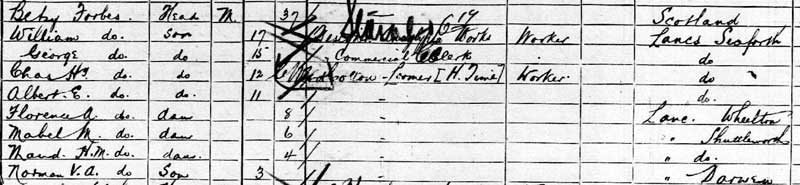 Betsy Forbes. Head M 37 Scotland
William do. Son 17 Works Worker Lancs Seaforth
George do do 15 Commercial Clerk do
Chas Hy. do. do 12 Cotton [H. Time] Worker. do
Albert. E. do. do. 11 do.
Florence A. do. dau 8 Lanc. Wheelton
Mabel M. do. dau 6 " Shuttleworth
Maud. H. M. do. dau. 4 " do.
Norman V. A. do Son 3 " Darwen